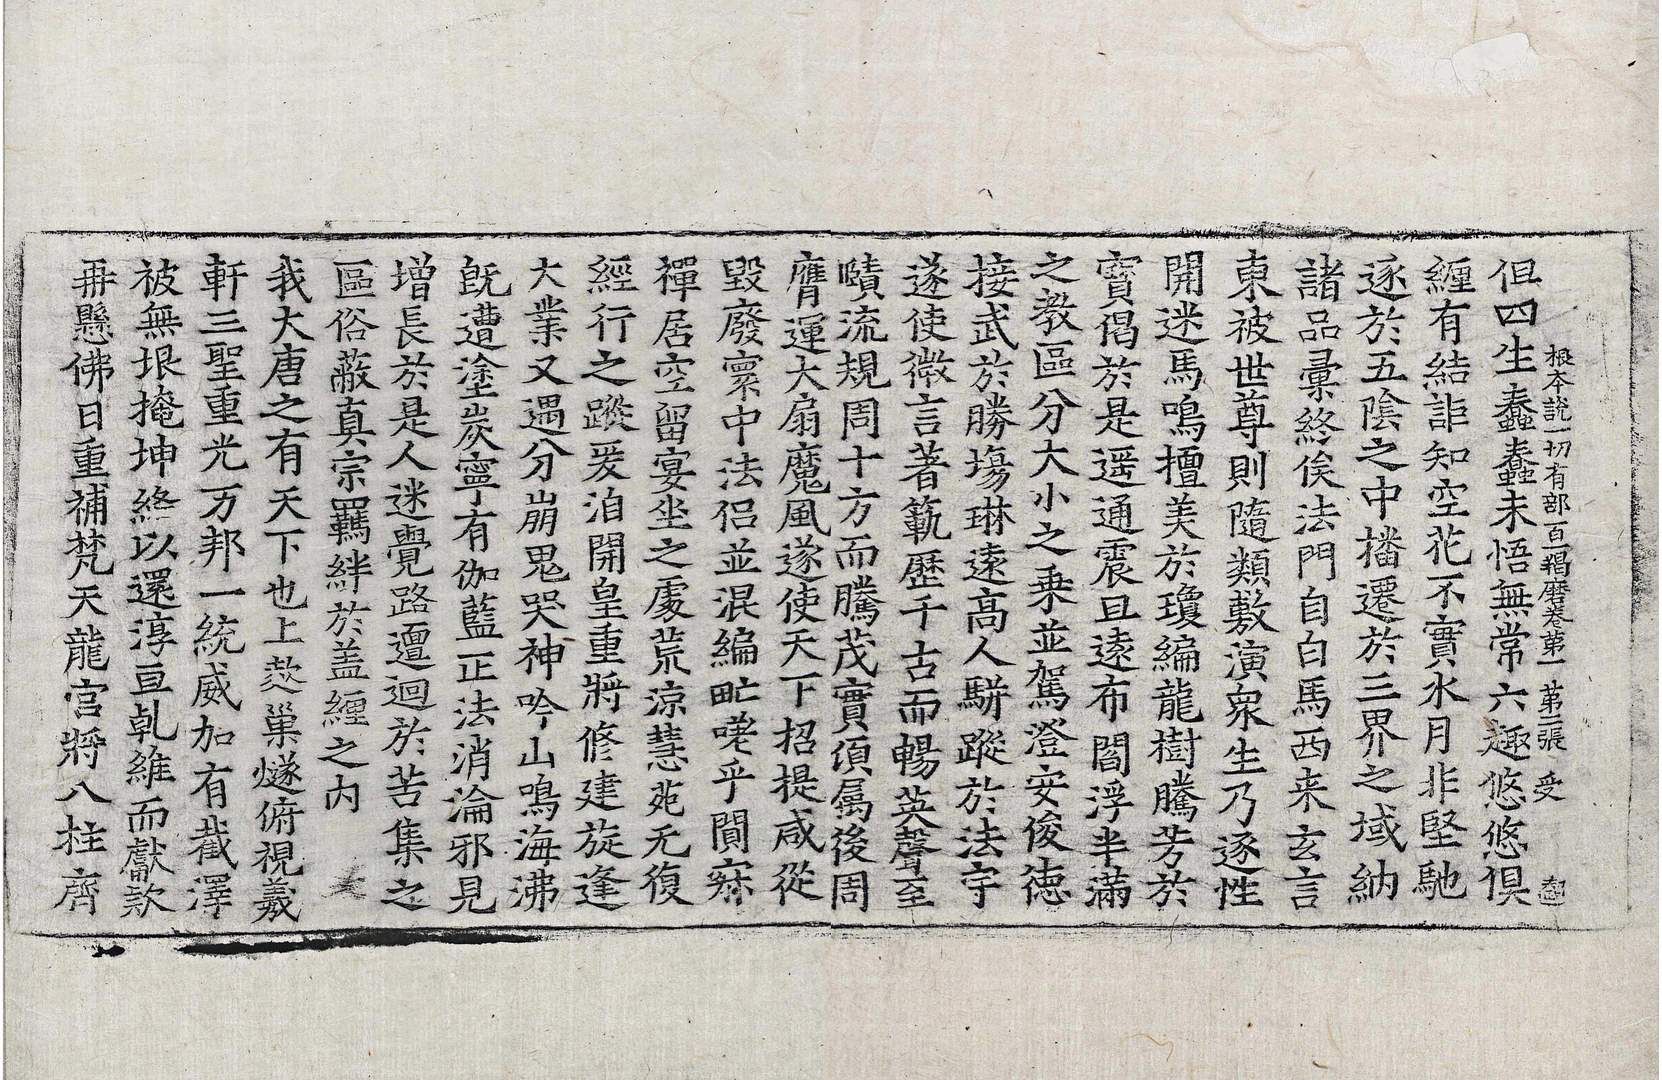 根本說一切有部百一羯磨卷第一　第二張　受
但四生蠢蠢未悟無常六趣悠悠俱
纏有結詎知空花不實水月非堅馳
逐於五陰之中播遷於三界之域納
諸品彙終俟法門自白馬西来玄言
東被世尊則隨類敷演衆生乃逐性
開迷馬鳴擅美於瓊編龍樹騰芳於
寶偈於是遥通震旦遠布閻浮半滿
之教區分大小之乗並駕澄安俊德
接武於勝塲琳遠高人騈蹤於法宇
遂使微言著範歷千古而暢英聲至
賾流規周十方而騰茂實湏屬後周
膺運大扇魔風遂使天下招提咸從
毀廢寰中法侶並混編甿嗟乎閴寂
禪居空留宴坐之處荒涼慧菀无復
經行之蹤爰洎開皇重將修建旋逢
大業又遇分崩鬼哭神吟山鳴海沸
旣遭塗炭寧有伽藍正法消淪邪見
增長於是人迷覺路邅迴於苦集之
區俗蔽真宗羈絆於盖纏之内
我大唐之有天下也上㱃巢燧俯視羲
軒三聖重光万邦一統威加有截澤
被無垠掩坤絡以還淳亘乹維而獻款
再懸佛日重補梵天龍宫將八柱齊